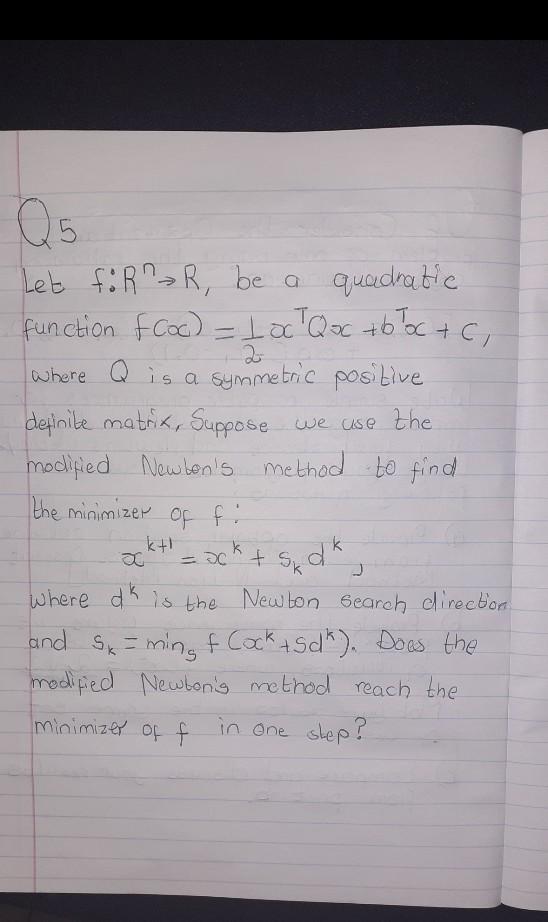 Q5
Let f:Rⁿ→R, be a quadratic
function f(x) = 1/2 xᵀQx + bᵀx + c,
where Q is a symmetric positive
definite matrix, Suppose we use the
modified Newton's method to find
the minimizer of f:
xᵏ⁺¹ = xᵏ + sₖdᵏ,
where dᵏ is the Newton search direction
and sₖ = minₛ f(xᵏ+sdᵏ). Does the
modified Newton's method reach the
minimizer of f in one step?